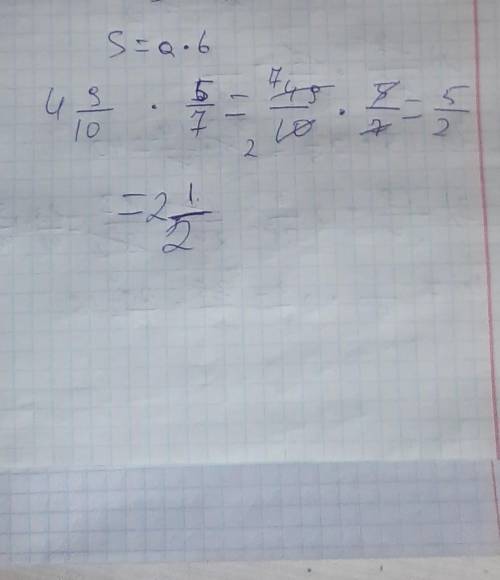 S = a · b
4 9/10 · 5/7 = 7 49/10 2 · 5/7 = 5/2
= 2 1/2